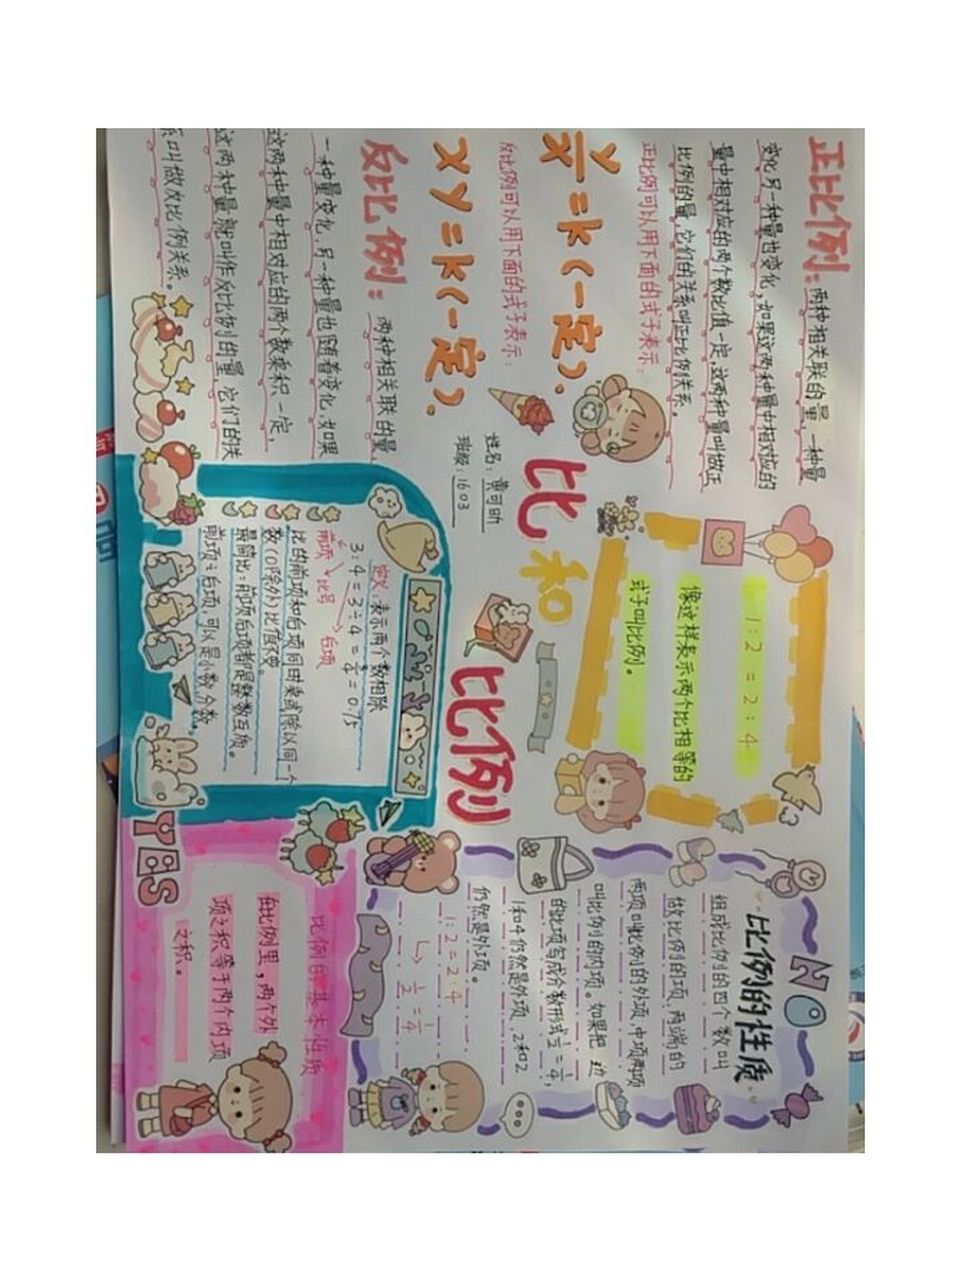 正比例：两种相关联的量，一种量
变化另一种量也变化，如果这两种量中相对应的
量中相对应的两个数比值一定，这两种量叫做正
比例的量，它们的关系叫正比例关系。
正比例可以用下面的式子表示：
y/x=k(一定).
反比例可以用下面的式子表示：
xy=k(一定).
反比例：两种相关联的量
一种量变化，另一种量也随着变化，如果
这两种量中相对应的两个数乘积一定，
这两种量就叫作反比例的量，它们的关
系叫做反比例关系。
比和比例
姓名：黄可昕
班级：1603
1:2=2:4
像这样表示两个比相等的
式子叫比例。
定义：表示两个数相除
3:4=3÷4=3/4=0.75
前项 比号 后项
比的前项和后项同时乘或除以同一个
数(0除外)比值不变。
最简比：前项后项都是整数互质。
前项：后项，可以是小数，分数。
NO
比例的性质
组成比例的四个数叫
做比例的项，两端的
两项叫比例的外项，中项两项
叫比例的内项。如果把
的比项写成分数形式1/2=2/4，
1和4仍然是外项，2和2
仍然是外项。
1:2=2:4
1/2=1/4
YES
比例的基本性质
在比例里，两个外
项之积等于两个内项
之积。